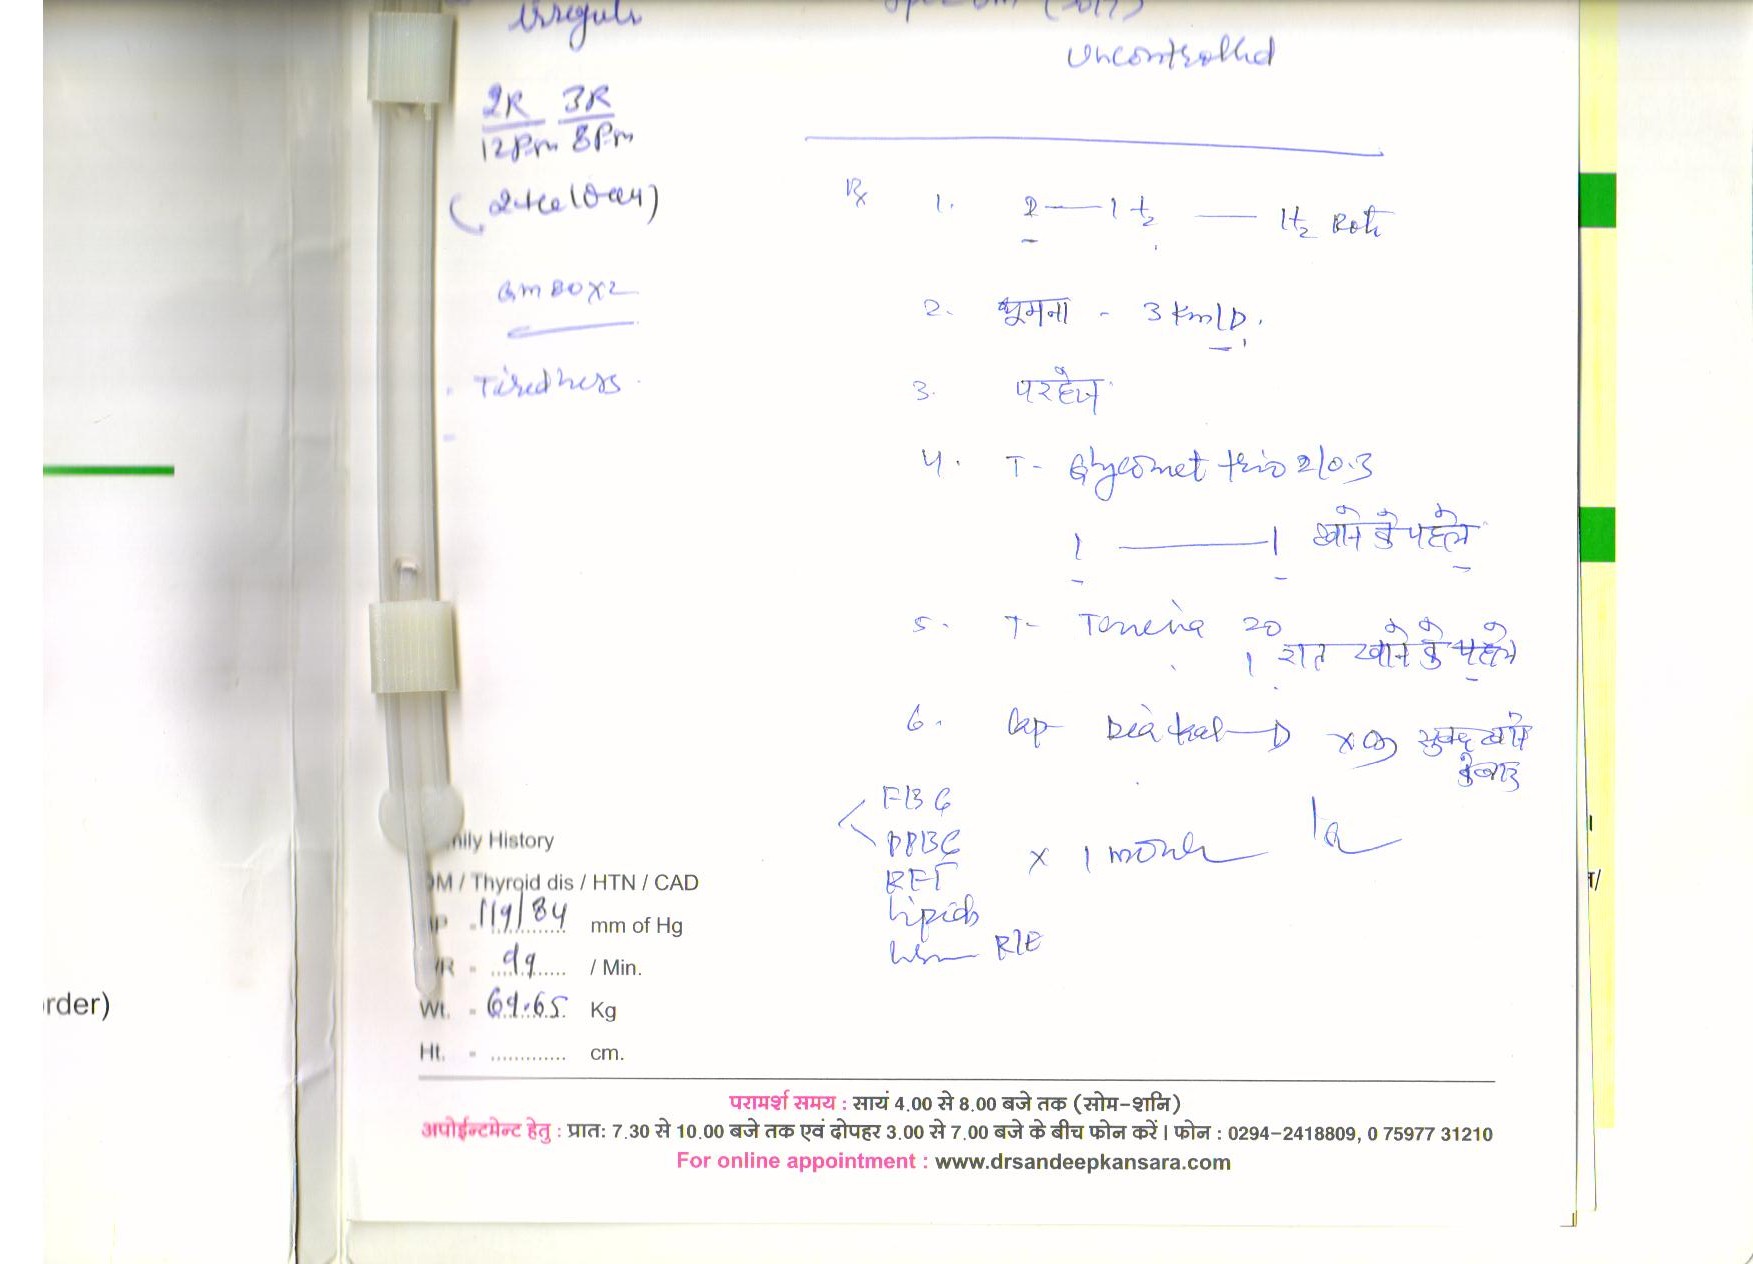 irregular
Uncontrolled
2R 3R
12Pm 8Pm
Rx 1. 2 — 1 1/2 — 1 1/2 Roti
GM 80 x 2
2. घूमना - 3 Km/D.
Tiredness
3. परहेज
4. T- Glycomet trio 2/0.3
1 — 1 खाने के पहले
5. T- 20
1 रात खाने के पहले
6. Cap D x सुबह खाने
के बाद
FBG
PPBG
x 1 month
RFT
Lipids
R/E
mily History
DM / Thyroid dis / HTN / CAD
P - 119/84 mm of Hg
R - 99 / Min.
Wt. - 69.65 Kg
Ht. - ............. cm.
rder)
परामर्श समय : सायं 4.00 से 8.00 बजे तक (सोम-शनि)
अपोईन्टमेन्ट हेतु : प्रात: 7.30 से 10.00 बजे तक एवं दोपहर 3.00 से 7.00 बजे के बीच फोन करें। फोन : 0294-2418809, 0 75977 31210
For online appointment : www.drsandeepkansara.com